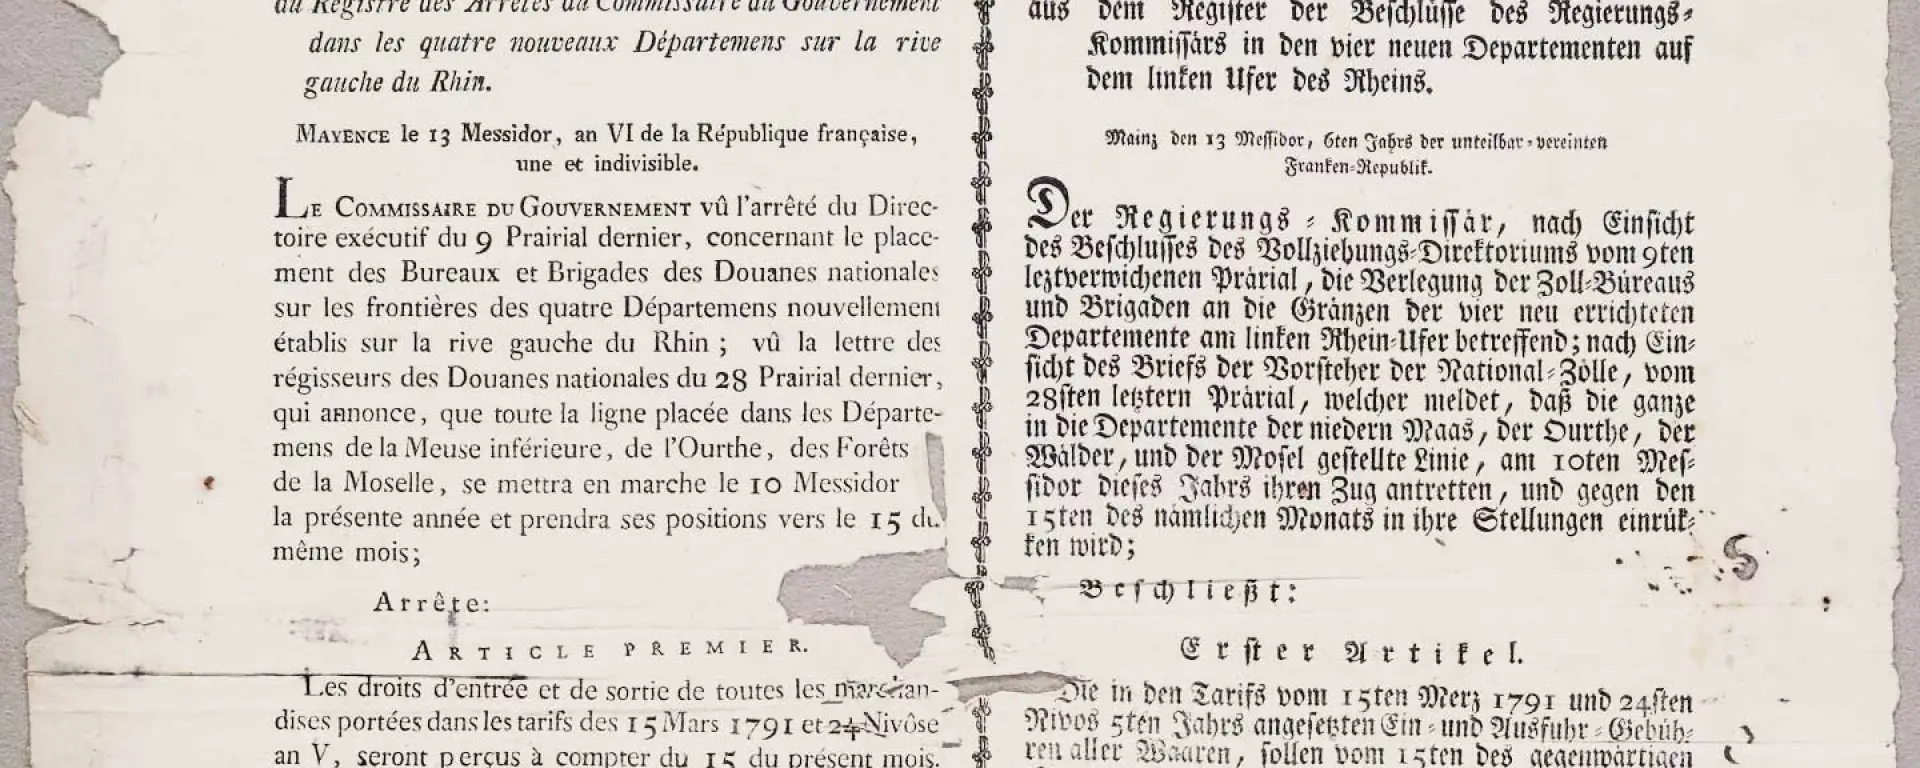 du Régistre des Arrêtés du Commissaire du Gouvernement
dans les quatre nouveaux Départemens sur la rive
gauche du Rhin.
MAYENCE le 13 Messidor, an VI de la République française,
une et indivisible.
LE COMMISSAIRE DU GOUVERNEMENT vû l'arrêté du Direc-
toire exécutif du 9 Prairial dernier, concernant le place-
ment des Bureaux et Brigades des Douanes nationales
sur les frontières des quatre Départemens nouvellement
établis sur la rive gauche du Rhin ; vû la lettre des
régisseurs des Douanes nationales du 28 Prairial dernier,
qui annonce, que toute la ligne placée dans les Départe-
mens de la Meuse inférieure, de l'Ourthe, des Forêts
de la Moselle, se mettra en marche le 10 Messidor
la présente année et prendra ses positions vers le 15 du
même mois;
Arrête:
ARTICLE PREMIER.
Les droits d'entrée et de sortie de toutes les marchan-
dises portées dans les tarifs des 15 Mars 1791 et 24 Nivôse
an V, seront perçus à compter du 15 du présent mois.
aus dem Register der Beschlüsse des Regierungs-
Kommissärs in den vier neuen Departementen auf
dem linken Ufer des Rheins.
Mainz den 13 Messidor, 6ten Jahrs der unteilbar-vereinten
Franken-Republik.
Der Regierungs-Kommissär, nach Einsicht
des Beschlusses des Vollziehungs-Direktoriums vom 9ten
leztverwichenen Prärial, die Verlegung der Zoll-Büreaus
und Brigaden an die Gränzen der vier neu errichteten
Departemente am linken Rhein-Ufer betreffend; nach Ein-
sicht des Briefs der Vorsteher der National-Zölle, vom
28sten letztern Prärial, welcher meldet, daß die ganze
in die Departemente der niedern Maas, der Ourthe, der
Wälder, und der Mosel gestellte Linie, am 10ten Mes-
sidor dieses Jahrs ihren Zug antretten, und gegen den
15ten des nämlichen Monats in ihre Stellungen einrük-
ken wird;
Beschließt:
Erster Artikel.
Die in den Tarifs vom 15ten Merz 1791 und 24sten
Nivos 5ten Jahrs angesetzten Ein- und Ausfuhr-Gebüh-
ren aller Waaren, sollen vom 15ten des gegenwärtigen